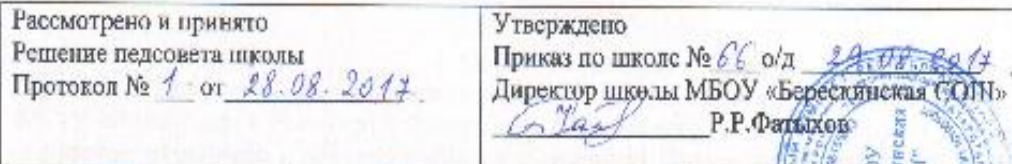 Рассмотрено и принято
Решение педсовета школы
Протокол № 1 от 28.08.2017
Утверждено
Приказ по школе № 66 о/д 29.08.2017
Директор школы МБОУ «Берескинская СОШ»
Р.Р.Фатыхов